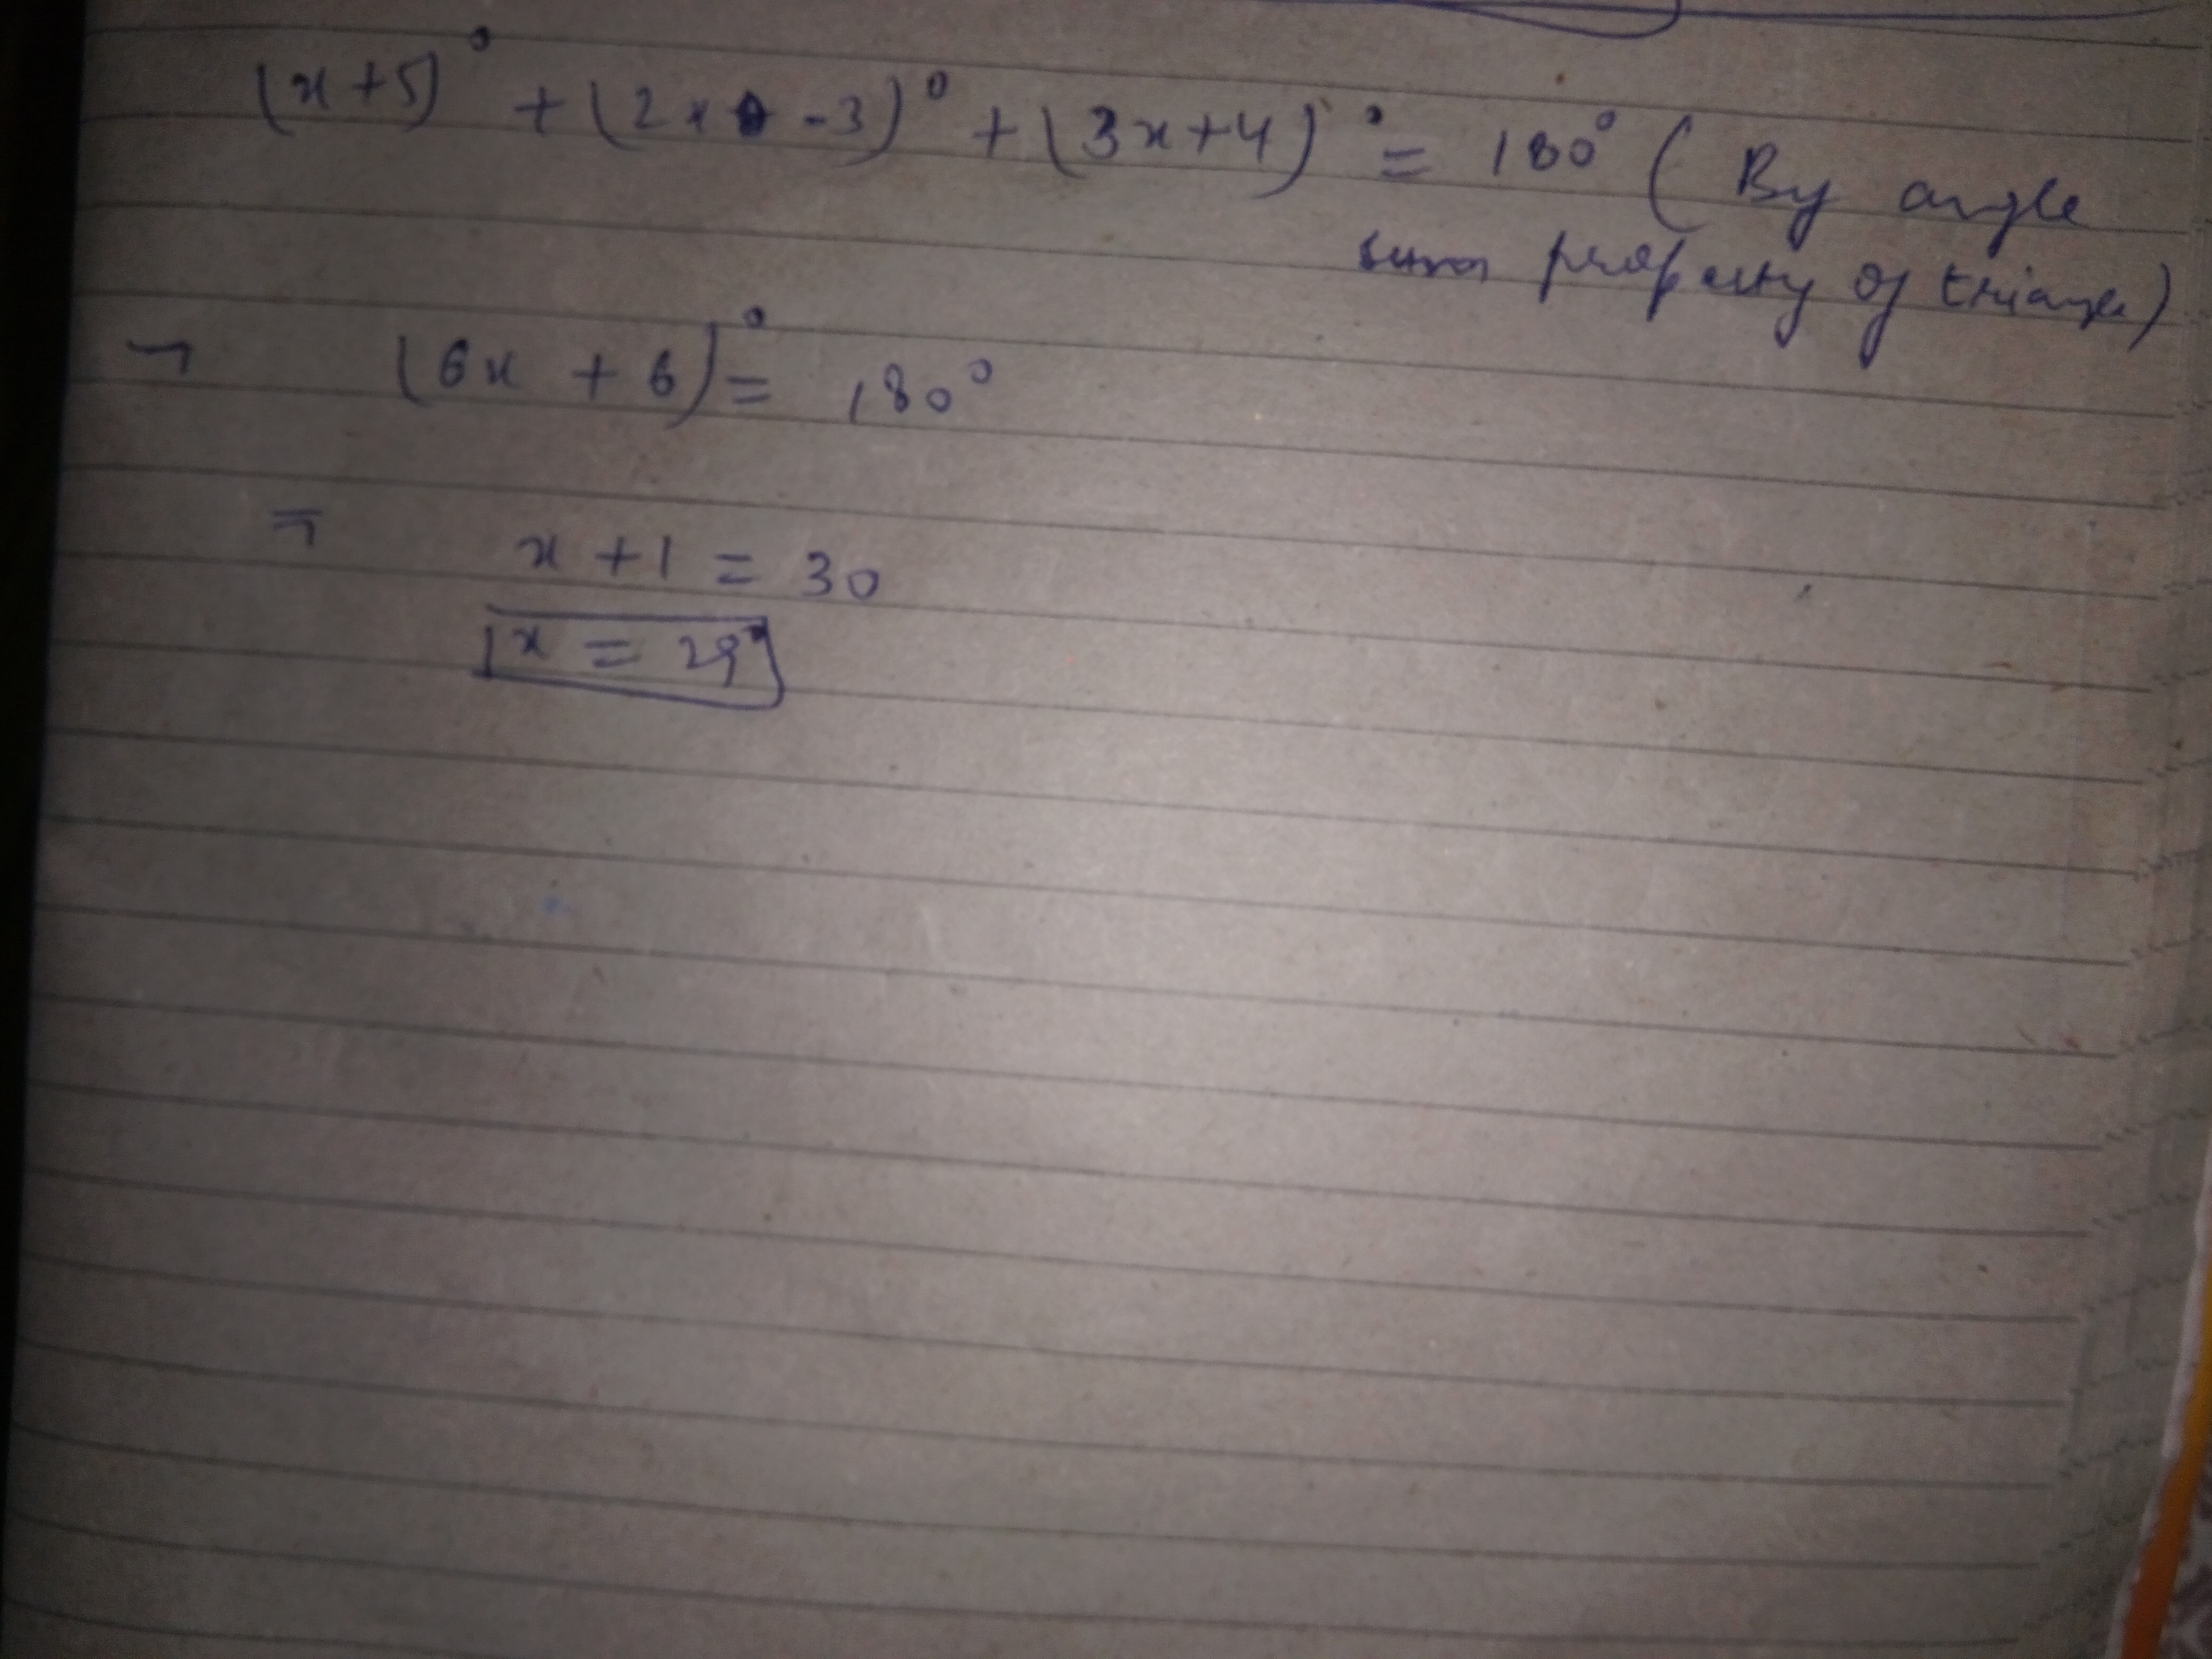 (x+5)° + (2x - 3)° + (3x+4)° = 180° ( By angle
sum property of triangle)
¬ (6x + 6)° = 180°
= x + 1 = 30
x = 29°